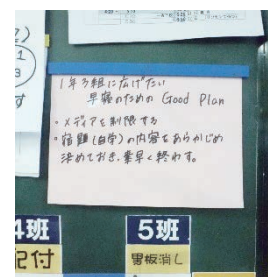 1年3組に広げたい
早寝のための Good Plan
・メディアを制限する
・宿題(自学)の内容をあらかじめ
決めておき、素早く終わす。
4班
5班
配付
黒板消し